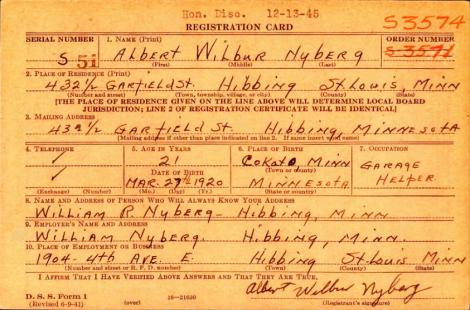 Hon. Disc. 12-13-45
S3574
REGISTRATION CARD
SERIAL NUMBER 1. NAME (Print) ORDER NUMBER
S 51 Albert Wilbur Nyberg S3571
(First) (Middle) (Last)
2. PLACE OF RESIDENCE (Print)
432½ Garfield St. Hibbing St. Louis, Minn
(Number and street) (Town, township, village, or city) (County) (State)
[THE PLACE OF RESIDENCE GIVEN ON THE LINE ABOVE WILL DETERMINE LOCAL BOARD
JURISDICTION; LINE 2 OF REGISTRATION CERTIFICATE WILL BE IDENTICAL]
3. MAILING ADDRESS
432½ Garfield St. Hibbing, Minnesota
[Mailing address if other than place indicated on line 2. If same insert word same]
4. TELEPHONE 5. AGE IN YEARS 6. PLACE OF BIRTH 7. OCCUPATION
/ 21 Cokato, Minn Garage
DATE OF BIRTH (Town or county)
/ Mar. 27th 1920 Minnesota Helper.
(Exchange) (Number) (Mo.) (Day) (Yr.) (State or country)
8. NAME AND ADDRESS OF PERSON WHO WILL ALWAYS KNOW YOUR ADDRESS
William P. Nyberg - Hibbing, Minn.
9. EMPLOYER'S NAME AND ADDRESS
William Nyberg. Hibbing, Minn.
10. PLACE OF EMPLOYMENT OR BUSINESS
1904-4th Ave. E. Hibbing St. Louis Minn.
(Number and street or R. F. D. number) (Town) (County) (State)
I AFFIRM THAT I HAVE VERIFIED ABOVE ANSWERS AND THAT THEY ARE TRUE.
Albert Wilbur Nyberg
D. S. S. Form 1 (Registrant's signature)
(Revised 6-9-41) (over) 16-21630